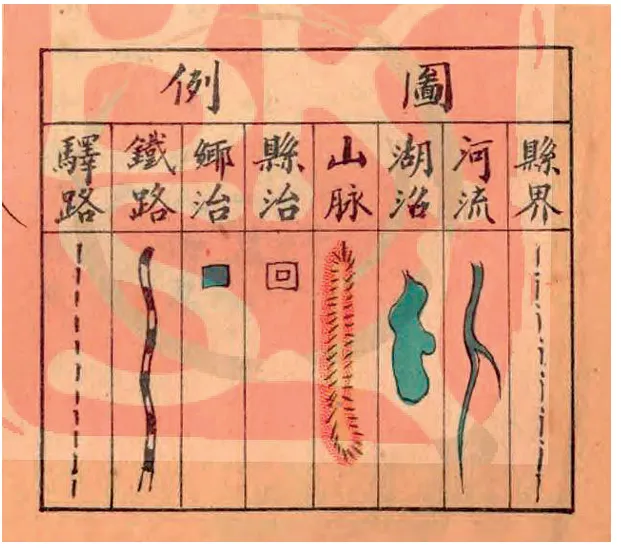 圖例
縣界
河流
湖沼
山脉
縣治
鄉治
鐵路
驛路